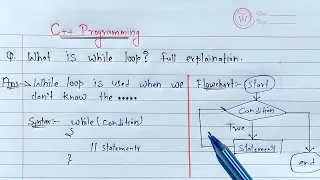 C++ Programming
Q. What is while loop? Full explaination.
Ans → While loop is used when we
don't know the .....
Syntax:- while (Condition)
{
// Statements
}
Flowchart:-
Start
Condition
True
Statements
end